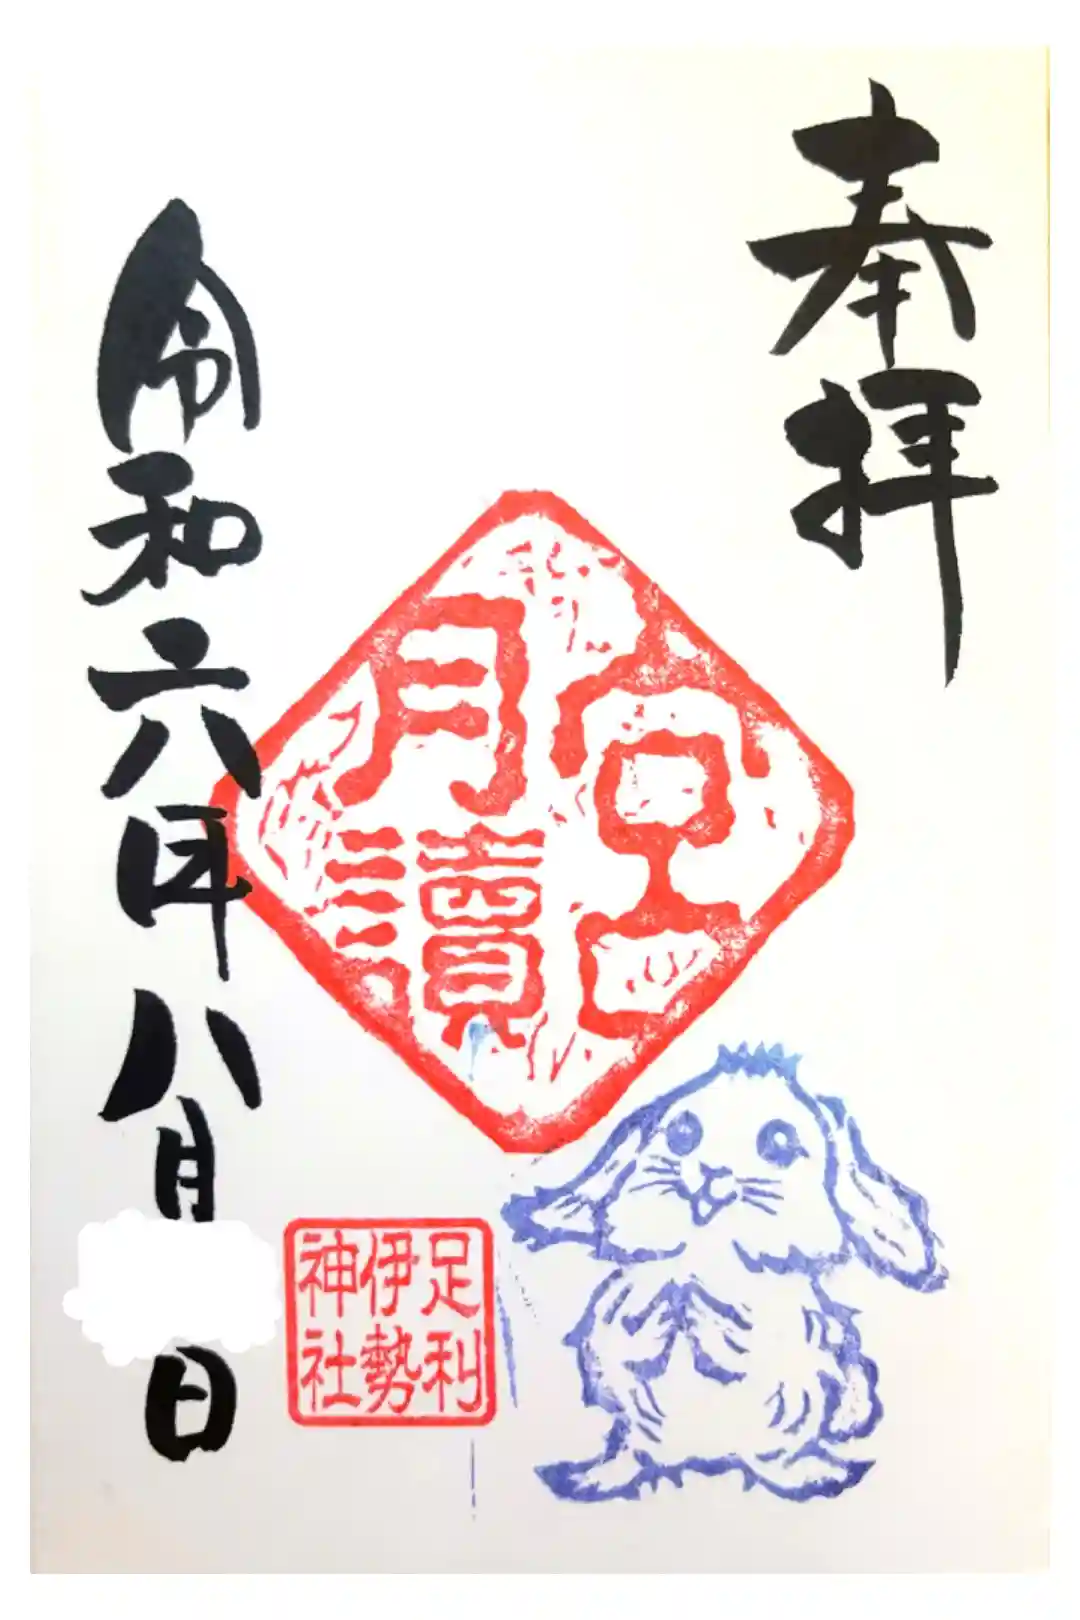 奉拝
月讀宮
足利
伊勢
神社
令和六年八月
日